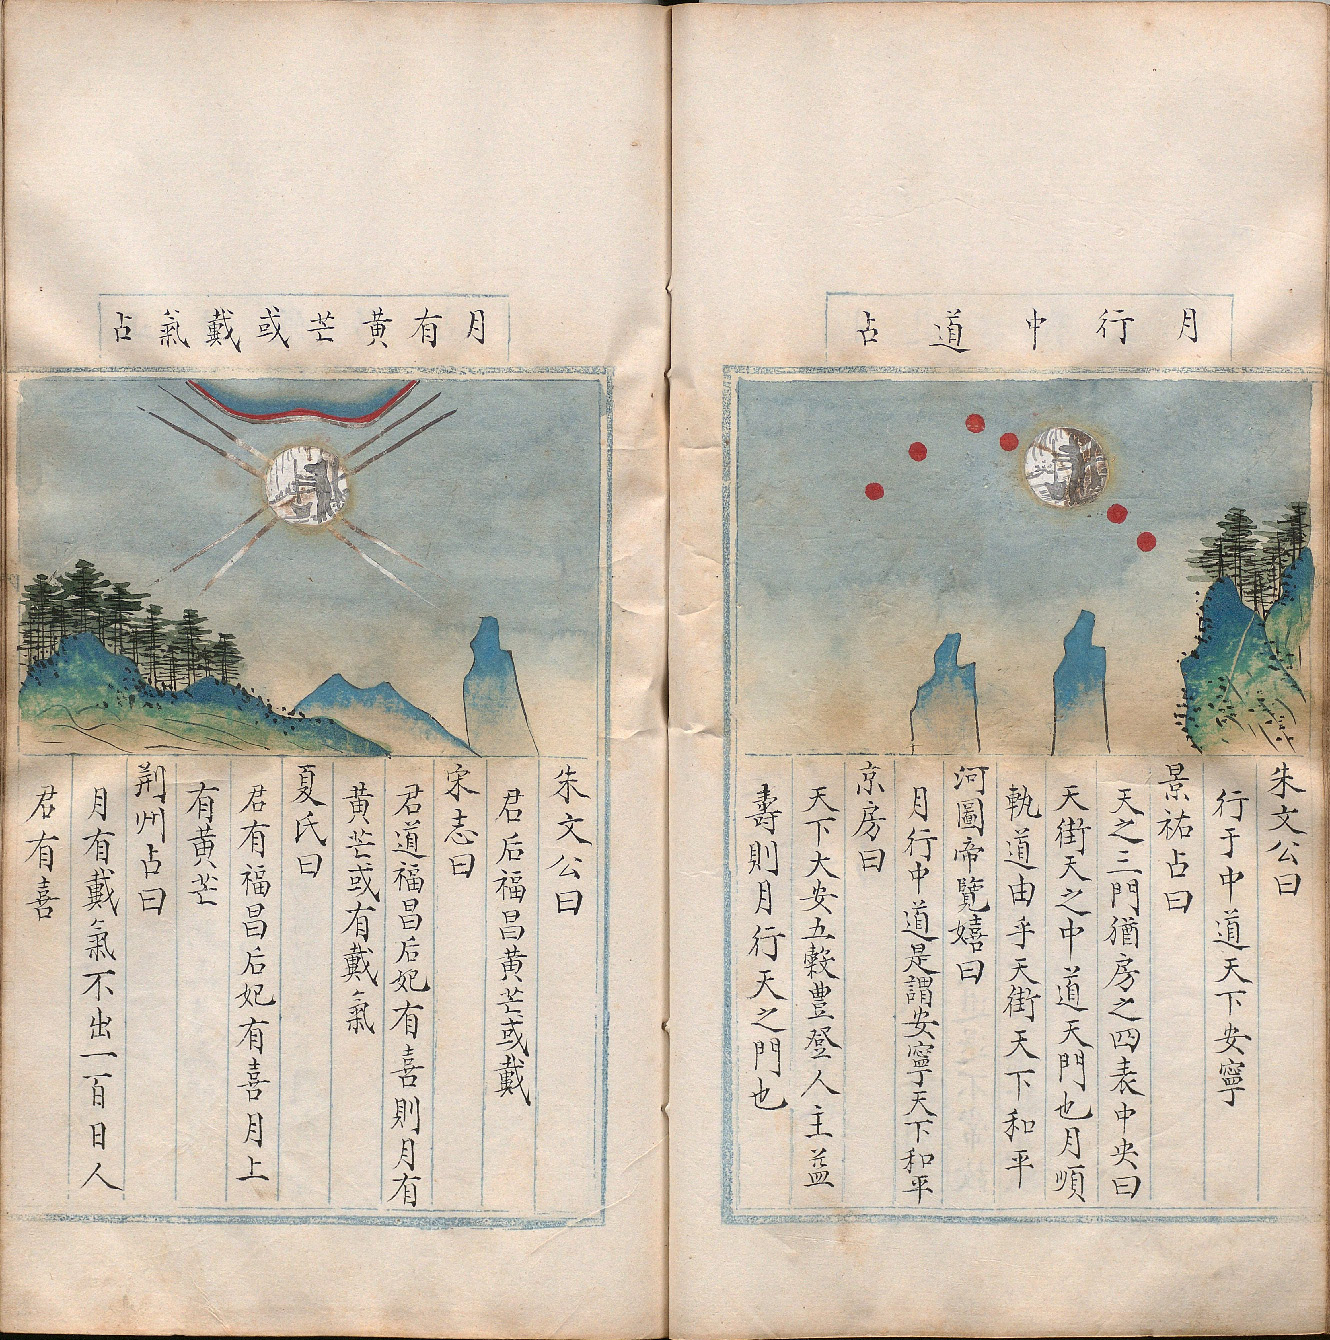 月行中道占
朱文公曰
行于中道天下安寧
景祐占曰
天之三門猶房之四表中央曰
天街天之中道天門也月順
軌道由乎天街天下和平
河圖帝覽嬉曰
月行中道是謂安寧天下和平
京房曰
天下大安五穀豊登人主益
壽則月行天之門也
月有黄芒或戴氣占
朱文公曰
君后福昌黄芒或戴
宋志曰
君道福昌后妃有喜則月有
黄芒或有戴氣
夏氏曰
君有福昌后妃有喜月上
有黄芒
荆州占曰
月有戴氣不出一百日人
君有喜